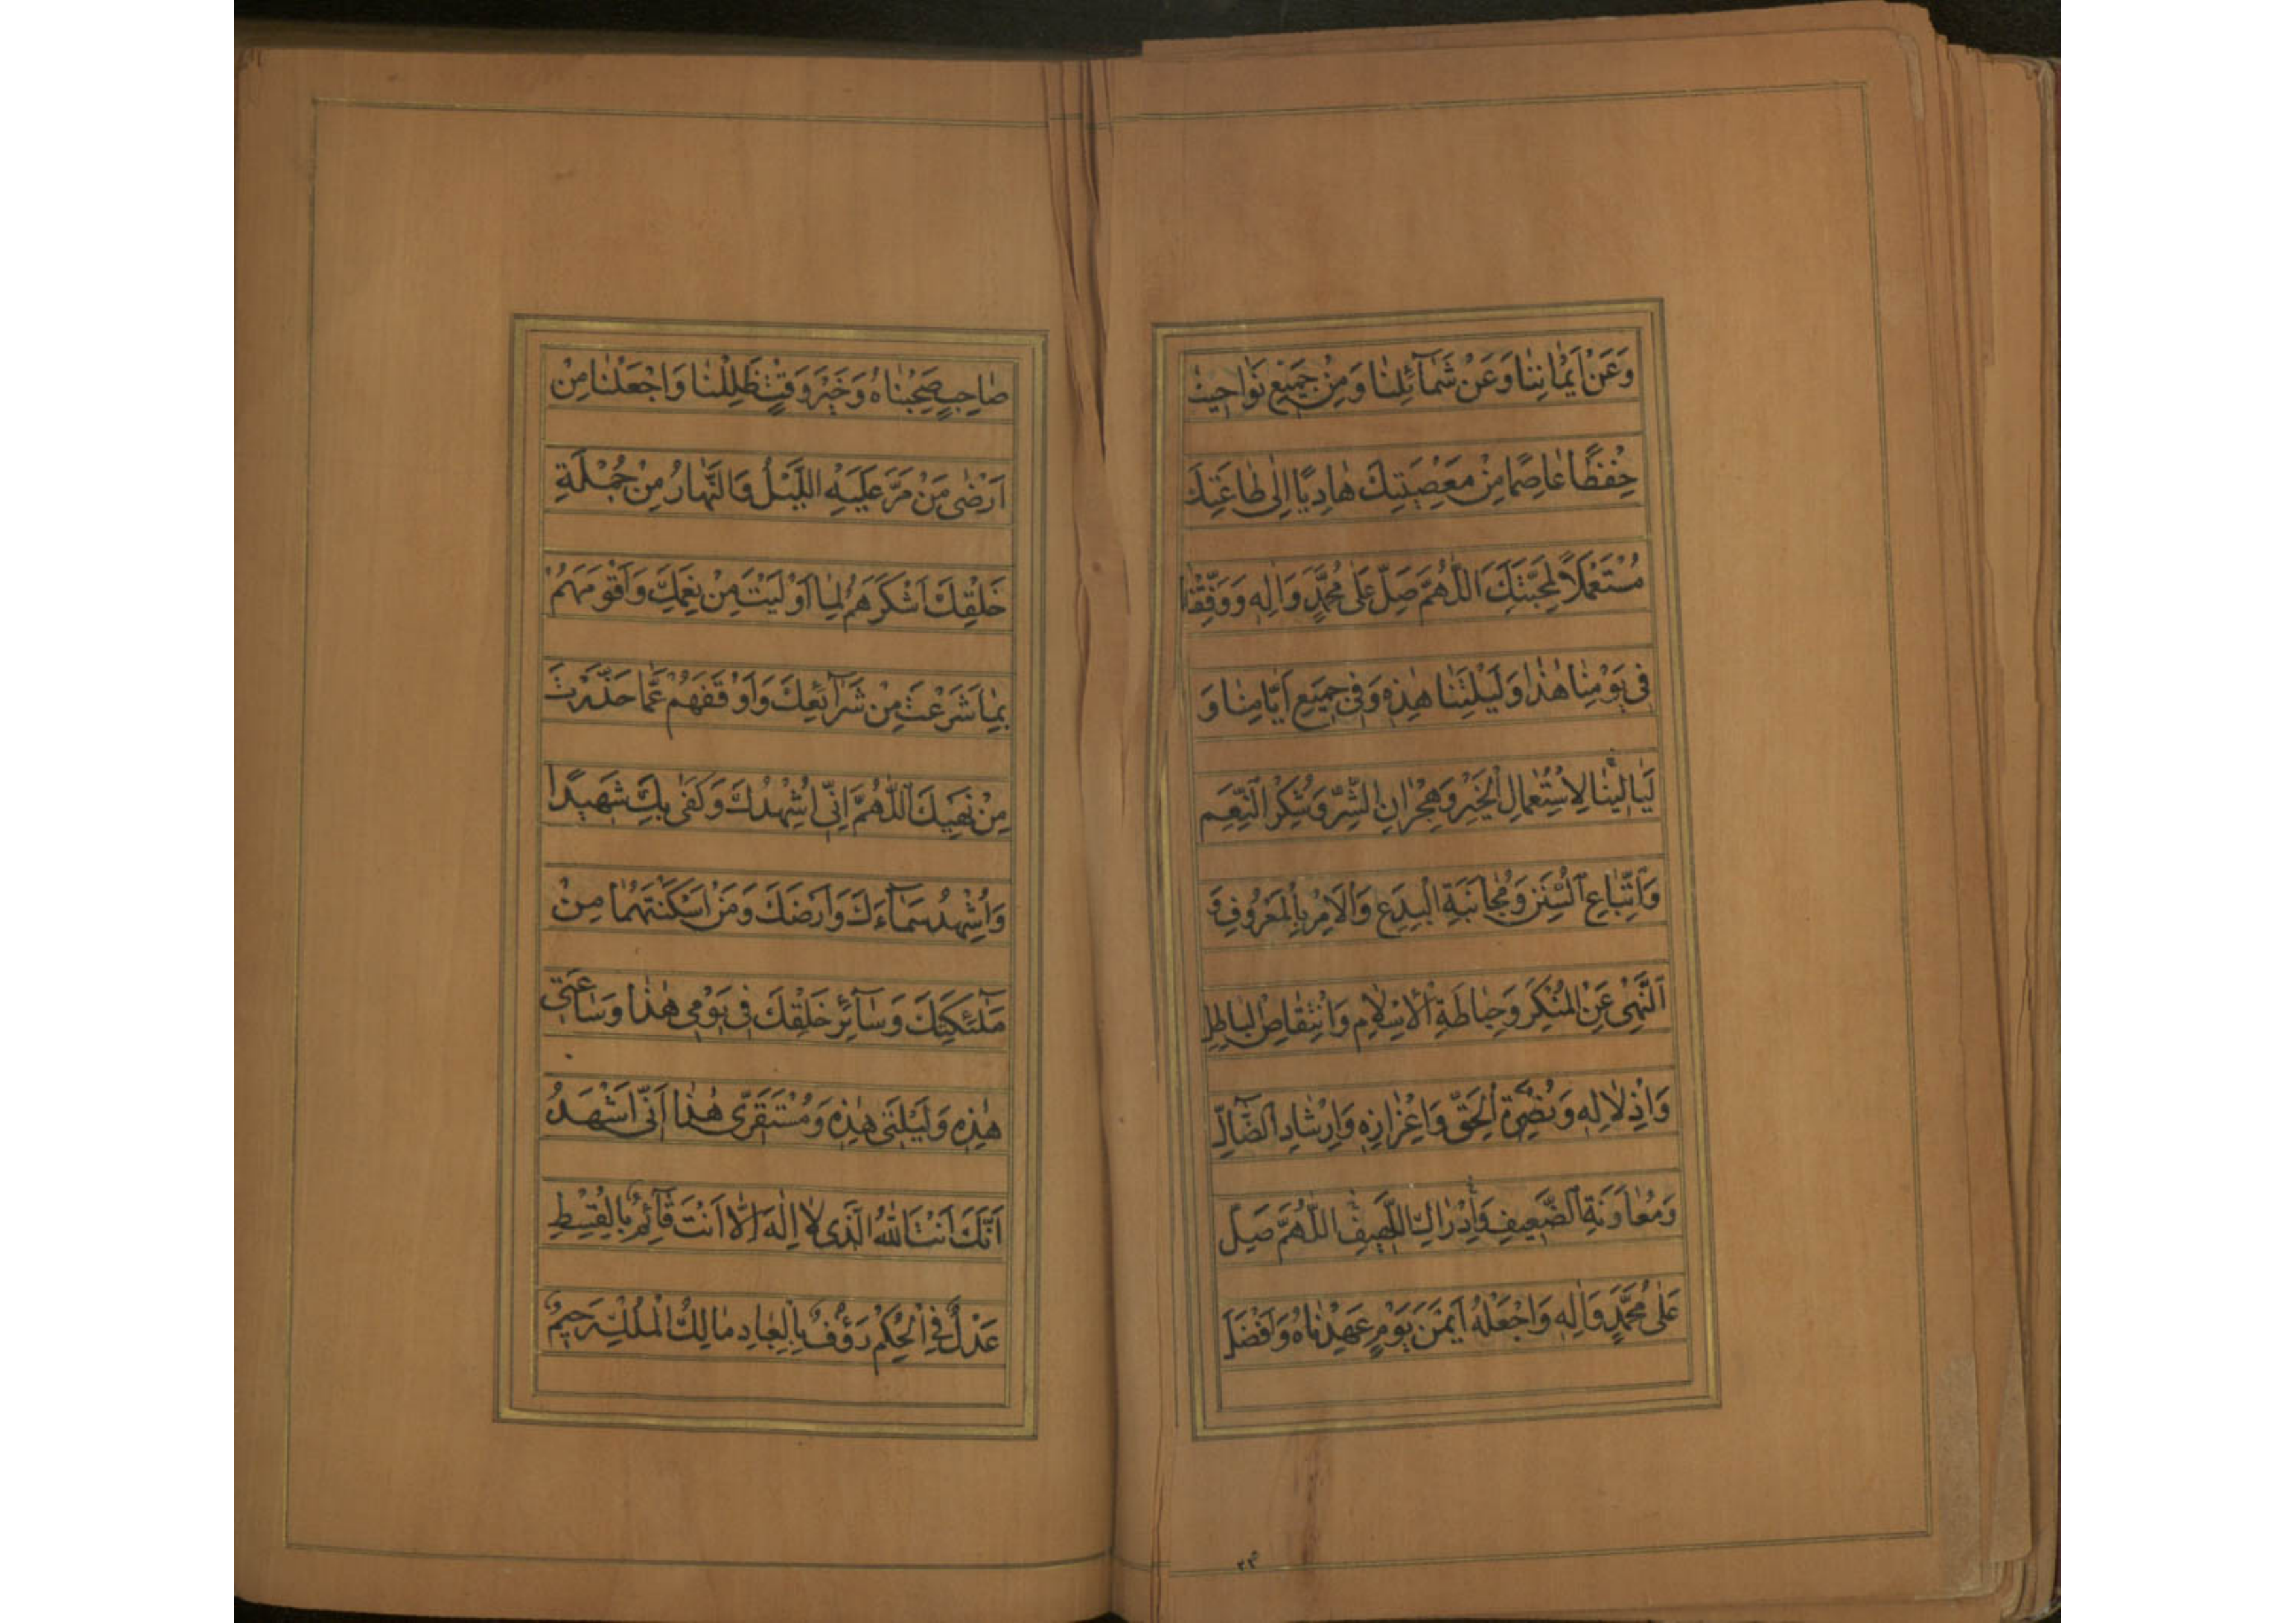 وَعَنْ اَيْمَانِنَا وَعَنْ شَمَآئِلِنَا وَمِنْ جَمِيْعِ نَوَاحِيْنَا
حِفْظًا عَاصِمًا مِنْ مَعْصِيَتِكَ هَادِيًا اِلٰى طَاعَتِكَ
مُسْتَعْمَلًا لِمَحَبَّتِكَ اَللّٰهُمَّ صَلِّ عَلٰى مُحَمَّدٍ وَاٰلِهٖ وَوَفِّقْنَا
فِىْ يَوْمِنَا هٰذَا وَلَيْلَتِنَا هٰذِهٖ وَفِىْ جَمِيْعِ اَيَّامِنَا وَ
لَيَالِيْنَا لِاسْتِعْمَالِ الْخَيْرِ وَهِجْرَانِ الشَّرِّ وَشُكْرِ النِّعَمِ
وَاتِّبَاعِ السُّنَنِ وَمُجَانَبَةِ الْبِدَعِ وَالْاَمْرِ بِالْمَعْرُوْفِ وَ
النَّهْىِ عَنِ الْمُنْكَرِ وَحِيَاطَةِ الْاِسْلَامِ وَانْتِقَاصِ الْبَاطِلِ
وَاِذْلَالِهٖ وَنُصْرَةِ الْحَقِّ وَاِعْزَازِهٖ وَاِرْشَادِ الضَّآلِّ
وَمُعَاوَنَةِ الضَّعِيْفِ وَاِدْرَاكِ اللَّهِيْفِ اَللّٰهُمَّ صَلِّ
عَلٰى مُحَمَّدٍ وَاٰلِهٖ وَاجْعَلْهُ اَيْمَنَ يَوْمٍ عَهِدْنَاهُ وَاَفْضَلَ
صَاحِبٍ صَحِبْنَاهُ وَخَيْرَ وَقْتٍ ظَلِلْنَا وَاجْعَلْنَا مِنْ
اَرْضٰى مَنْ مَرَّ عَلَيْهِ اللَّيْلُ وَالنَّهَارُ مِنْ جُمْلَةِ
خَلْقِكَ اَشْكَرَهُمْ لِمَا اَوْلَيْتَ مِنْ نِعَمِكَ وَاَقْوَمَهُمْ
بِمَا شَرَعْتَ مِنْ شَرَآئِعِكَ وَاَوْقَفَهُمْ عَمَّا حَذَّرْتَ
مِنْ نَهْيِكَ اَللّٰهُمَّ اِنِّىْ اُشْهِدُكَ وَكَفٰى بِكَ شَهِيْدًا
وَاُشْهِدُ سَمَآءَكَ وَاَرْضَكَ وَمَنْ اَسْكَنْتَهُمَا مِنْ
مَلٰٓئِكَتِكَ وَسَآئِرِ خَلْقِكَ فِىْ يَوْمِىْ هٰذَا وَسَاعَتِىْ
هٰذِهٖ وَلَيْلَتِىْ هٰذِهٖ وَمُسْتَقَرِّىْ هٰذَا اَنِّىْ اَشْهَدُ
اَنَّكَ اَنْتَ اللّٰهُ الَّذِىْ لَا اِلٰهَ اِلَّا اَنْتَ قَآئِمٌ بِالْقِسْطِ
عَدْلٌ فِى الْحُكْمِ رَؤُفٌ بِالْعِبَادِ مَالِكُ الْمُلْكِ رَحِيْمٌ